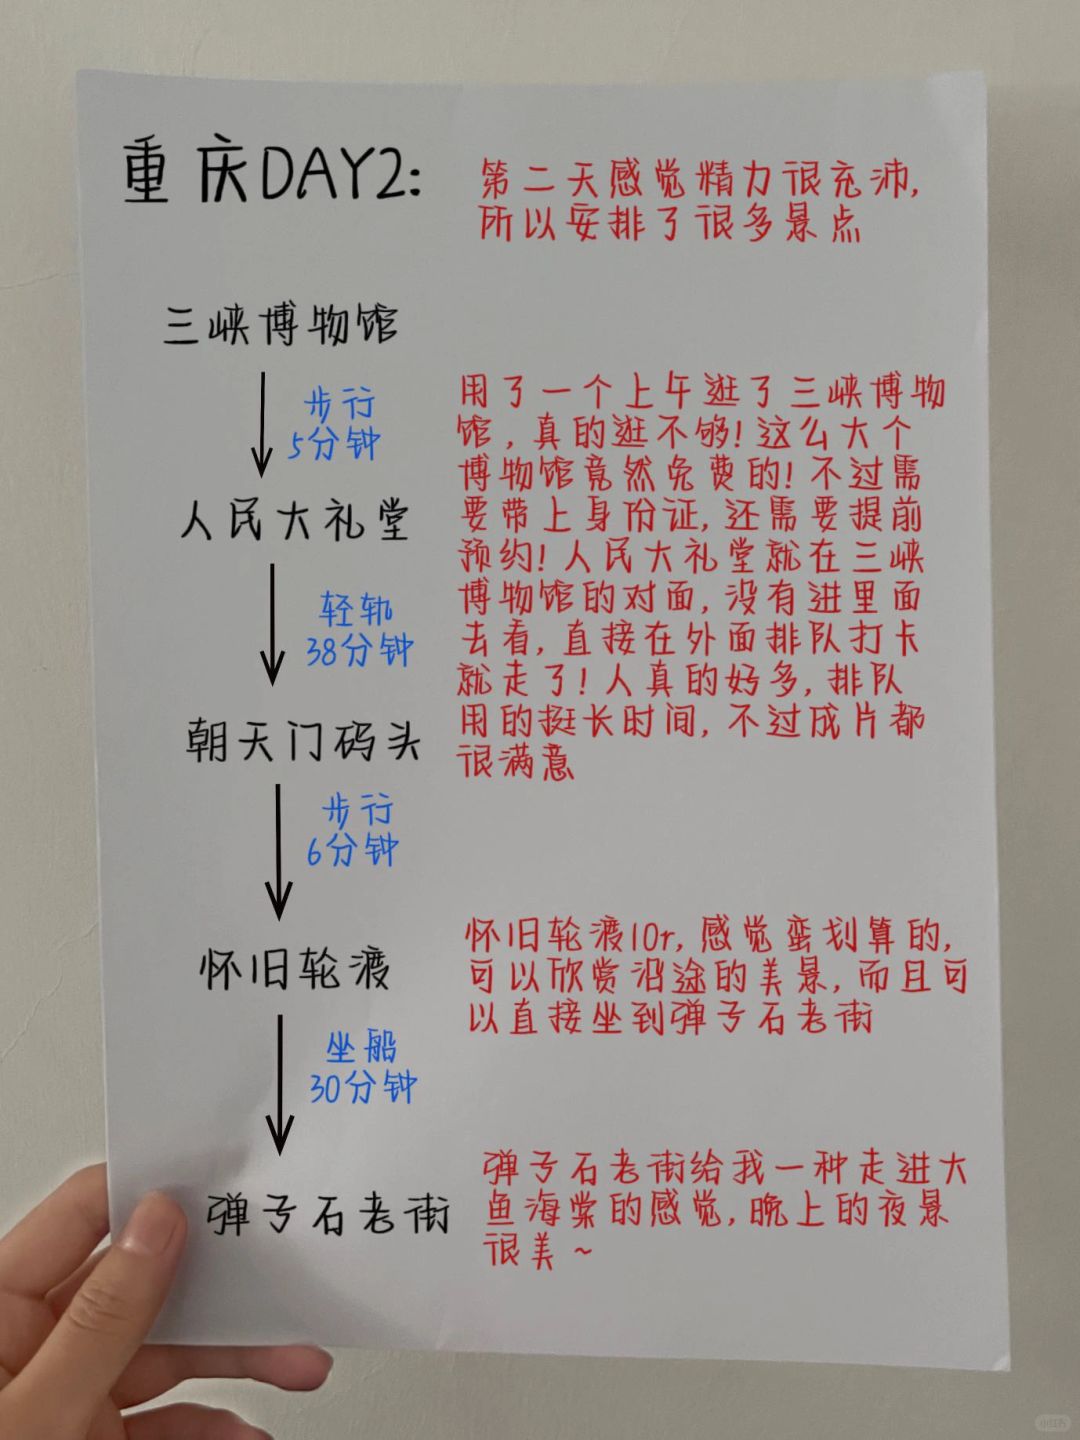 重庆DAY2:
第二天感觉精力很充沛,
所以安排了很多景点
三峡博物馆
步行
5分钟
人民大礼堂
用了一个上午逛了三峡博物
馆,真的逛不够!这么大个
博物馆竟然免费的!不过需
要带上身份证,还需要提前
预约!人民大礼堂就在三峡
博物馆的对面,没有进里面
去看,直接在外面排队打卡
就走了!人真的好多,排队
用的挺长时间,不过成片都
很满意
轻轨
38分钟
朝天门码头
步行
6分钟
怀旧轮渡
怀旧轮渡10r,感觉蛮划算的,
可以欣赏沿途的美景,而且可
以直接坐到弹子石老街
坐船
30分钟
弹子石老街
弹子石老街给我一种走进大
鱼海棠的感觉,晚上的夜景
很美~
小红书